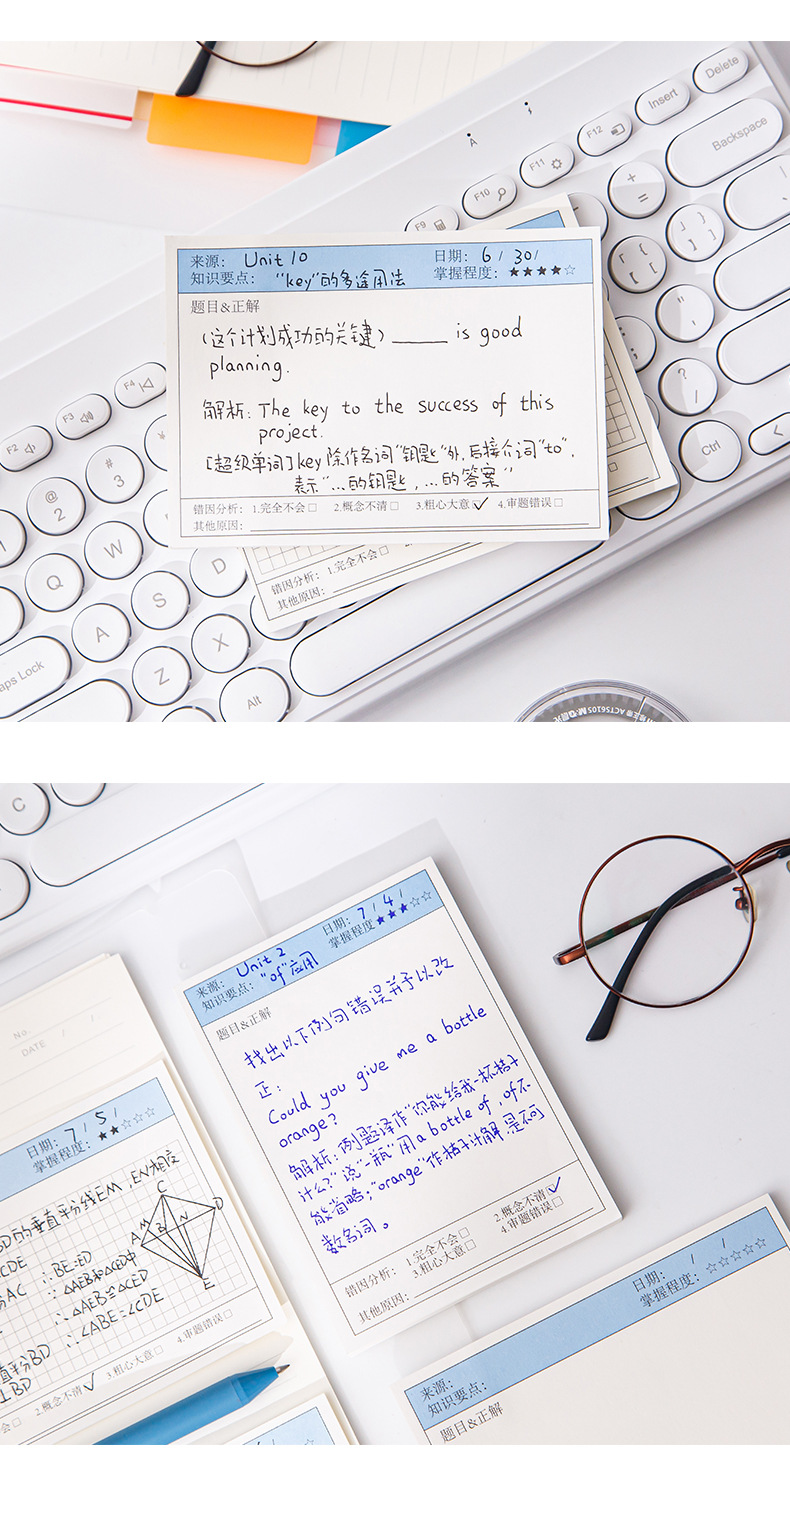 Delete
Insert
F12
Backspace
F11
F10
F9
A
+
=
来源： Unit 10 日期： 6 / 30 /
知识要点： "key"的多途用法 掌握程度：★★★★☆
题目&正解
(这个计划成功的关键) _____ is good
planning.
解析: The key to the success of this
project.
[超级单词] key 除作名词"钥匙"外, 后接介词"to",
表示"...的钥匙, ...的答案"
错因分析： 1.完全不会□ 2.概念不清□ 3.粗心大意☑ 4.审题错误□
其他原因：
错因分析： 1.完全不会□
其他原因：
F4
F3
F2
#
3
@
2
W
Q
D
S
A
X
Z
Alt
Ctrl
?
/
aps Lock
ACT56105
C
来源： Unit 2 日期： 7 / 4 /
知识要点： "of"应用 掌握程度★★★☆☆
题目&正解
找出以下例句错误并予以改
正:
Could you give me a bottle
orange?
解析: 例题译作"你能给我一杯桔子
汁么?"说"一瓶"用a bottle of, of不
能省略; "orange"作桔子汁解是不可
数名词。
错因分析： 1.完全不会□ 2.概念不清☑
3.粗心大意□ 4.审题错误□
其他原因：
No.
DATE / /
日期： 7 / 5 /
掌握程度：★★☆☆☆
BD的垂直平分线EM, EN相度
CDE
AC ∴BE=ED
∵ △AEB和△CED中
∴ △AEB≌△CED
∴ ∠ABE=∠CDE
直平分BD
⊥BD
A M C B N D E
会□ 2.概念不清☑ 3.粗心大意□ 4.审题错误□
日期： / /
掌握程度：☆☆☆☆☆
来源：
知识要点：
题目&正解